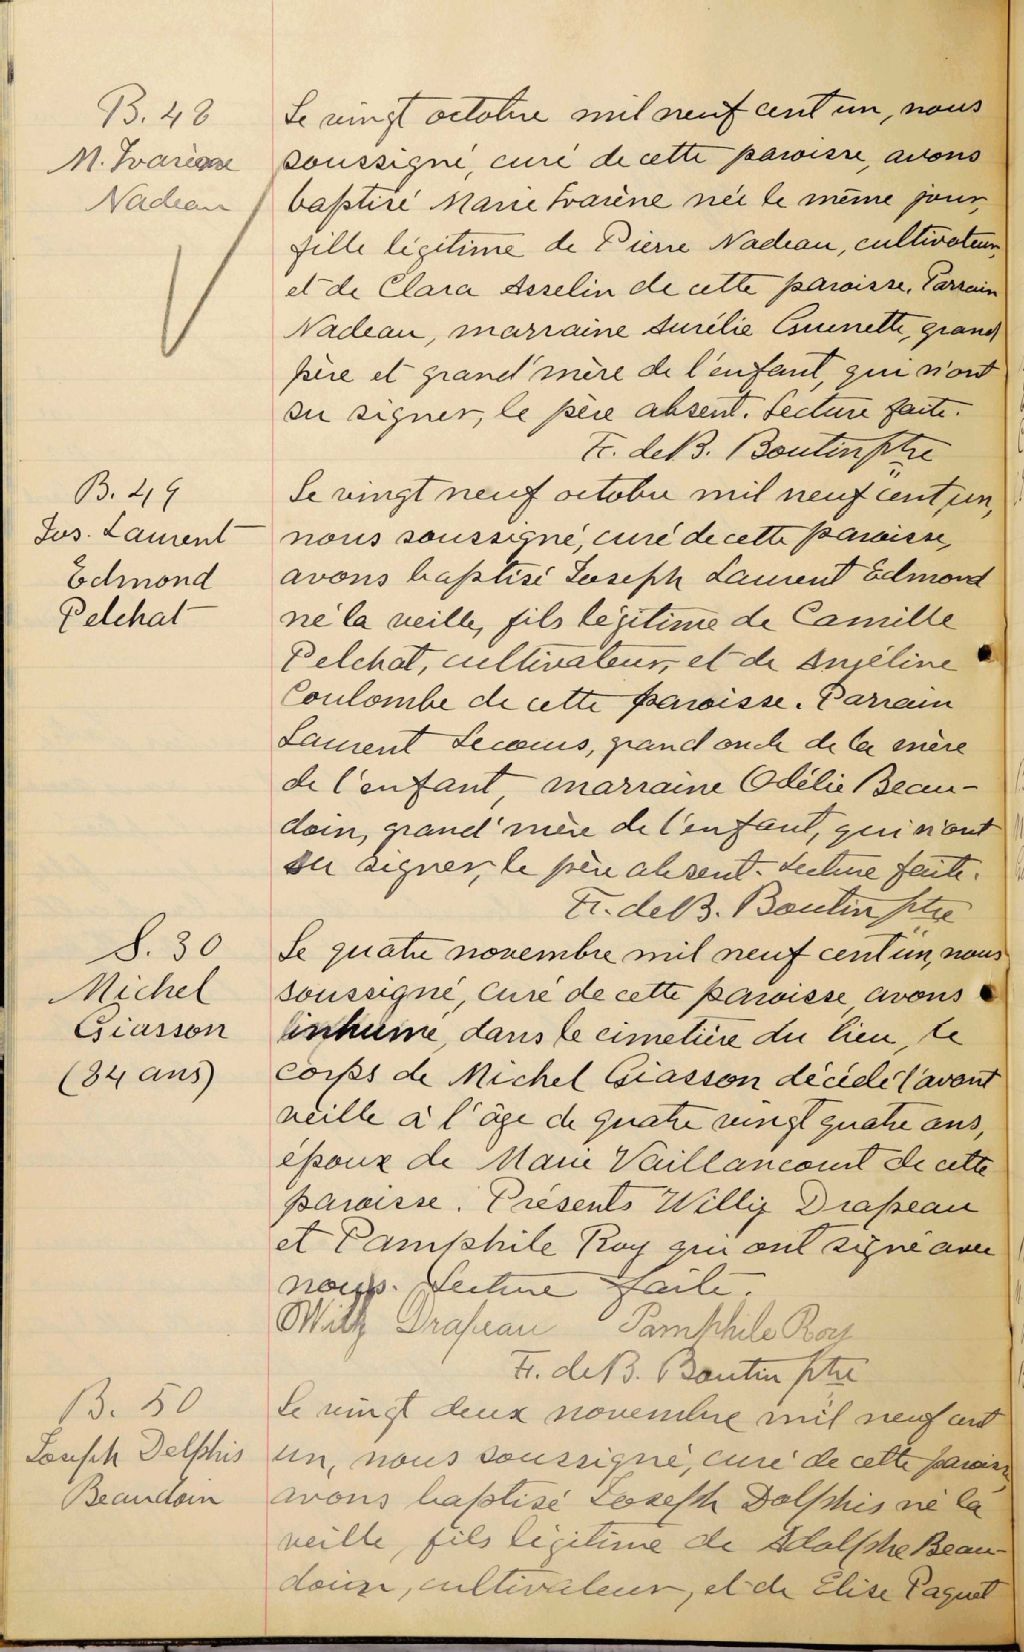 B. 48
M. Ivarène
Nadeau
Le vingt octobre mil neuf cent un, nous
soussigné, curé de cette paroisse, avons
baptisé Marie Ivarène née le même jour,
fille légitime de Pierre Nadeau, cultivateur,
et de Clara Asselin de cette paroisse. Parrain
Nadeau, marraine Aurélie Guenette, grand
père et grand'mère de l'enfant, qui n'ont
su signer, le père absent. Lecture faite.
Fr. de B. Boutin ptre
B. 49
Jos. Laurent
Edmond
Pelchat
Le vingt neuf octobre mil neuf cent un,
nous soussigné, curé de cette paroisse,
avons baptisé Joseph Laurent Edmond
né la veille, fils légitime de Camille
Pelchat, cultivateur, et de Anjéline
Coulombe de cette paroisse. Parrain
Laurent Lecours, grand oncle de la mère
de l'enfant, marraine Odélie Beau-
doin, grand'mère de l'enfant, qui n'ont
su signer, le père absent. Lecture faite.
Fr. de B. Boutin ptre
S. 30
Michel
Giasson
(84 ans)
Le quatre novembre mil neuf cent un, nous
soussigné, curé de cette paroisse, avons
inhumé, dans le cimetière du lieu, le
corps de Michel Giasson décédé l'avant
veille à l'âge de quatre vingt quatre ans,
époux de Marie Vaillancourt de cette
paroisse. Présents Willy Drapeau
et Pamphile Roy qui ont signé avec
nous. Lecture faite.
Willy Drapeau Pamphile Roy
Fr. de B. Boutin ptre
B. 50
Joseph Delphis
Beaudoin
Le vingt deux novembre mil neuf cent
un, nous soussigné, curé de cette paroisse,
avons baptisé Joseph Dolphis né la
veille, fils légitime de Adolphe Beau-
doin, cultivateur, et de Elise Paquet